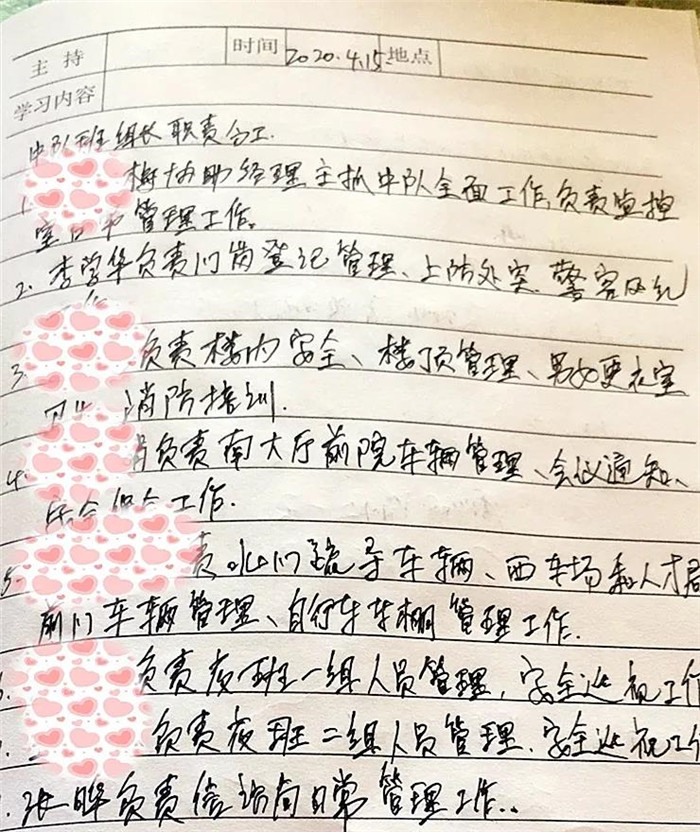 主持 时间 2020.4.15 地点
学习内容
中队班组长职责分工.
1. 梅协助经理主抓中队全面工作,负责监控
室日常管理工作。
2. 李学华负责门岗登记管理、上访处突、警容风纪
3. 负责楼内安全、楼顶管理、男女更衣室
消防培训.
4. 负责南大厅前院车辆管理、会议通知、
工作.
5. 责北门疏导车辆、西车场和人才居
前门车辆管理、自行车车棚管理工作.
负责夜班一组人员管理,安全巡视工作
负责夜班二组人员管理.安全巡视工作
张晔负责信访局日常管理工作..